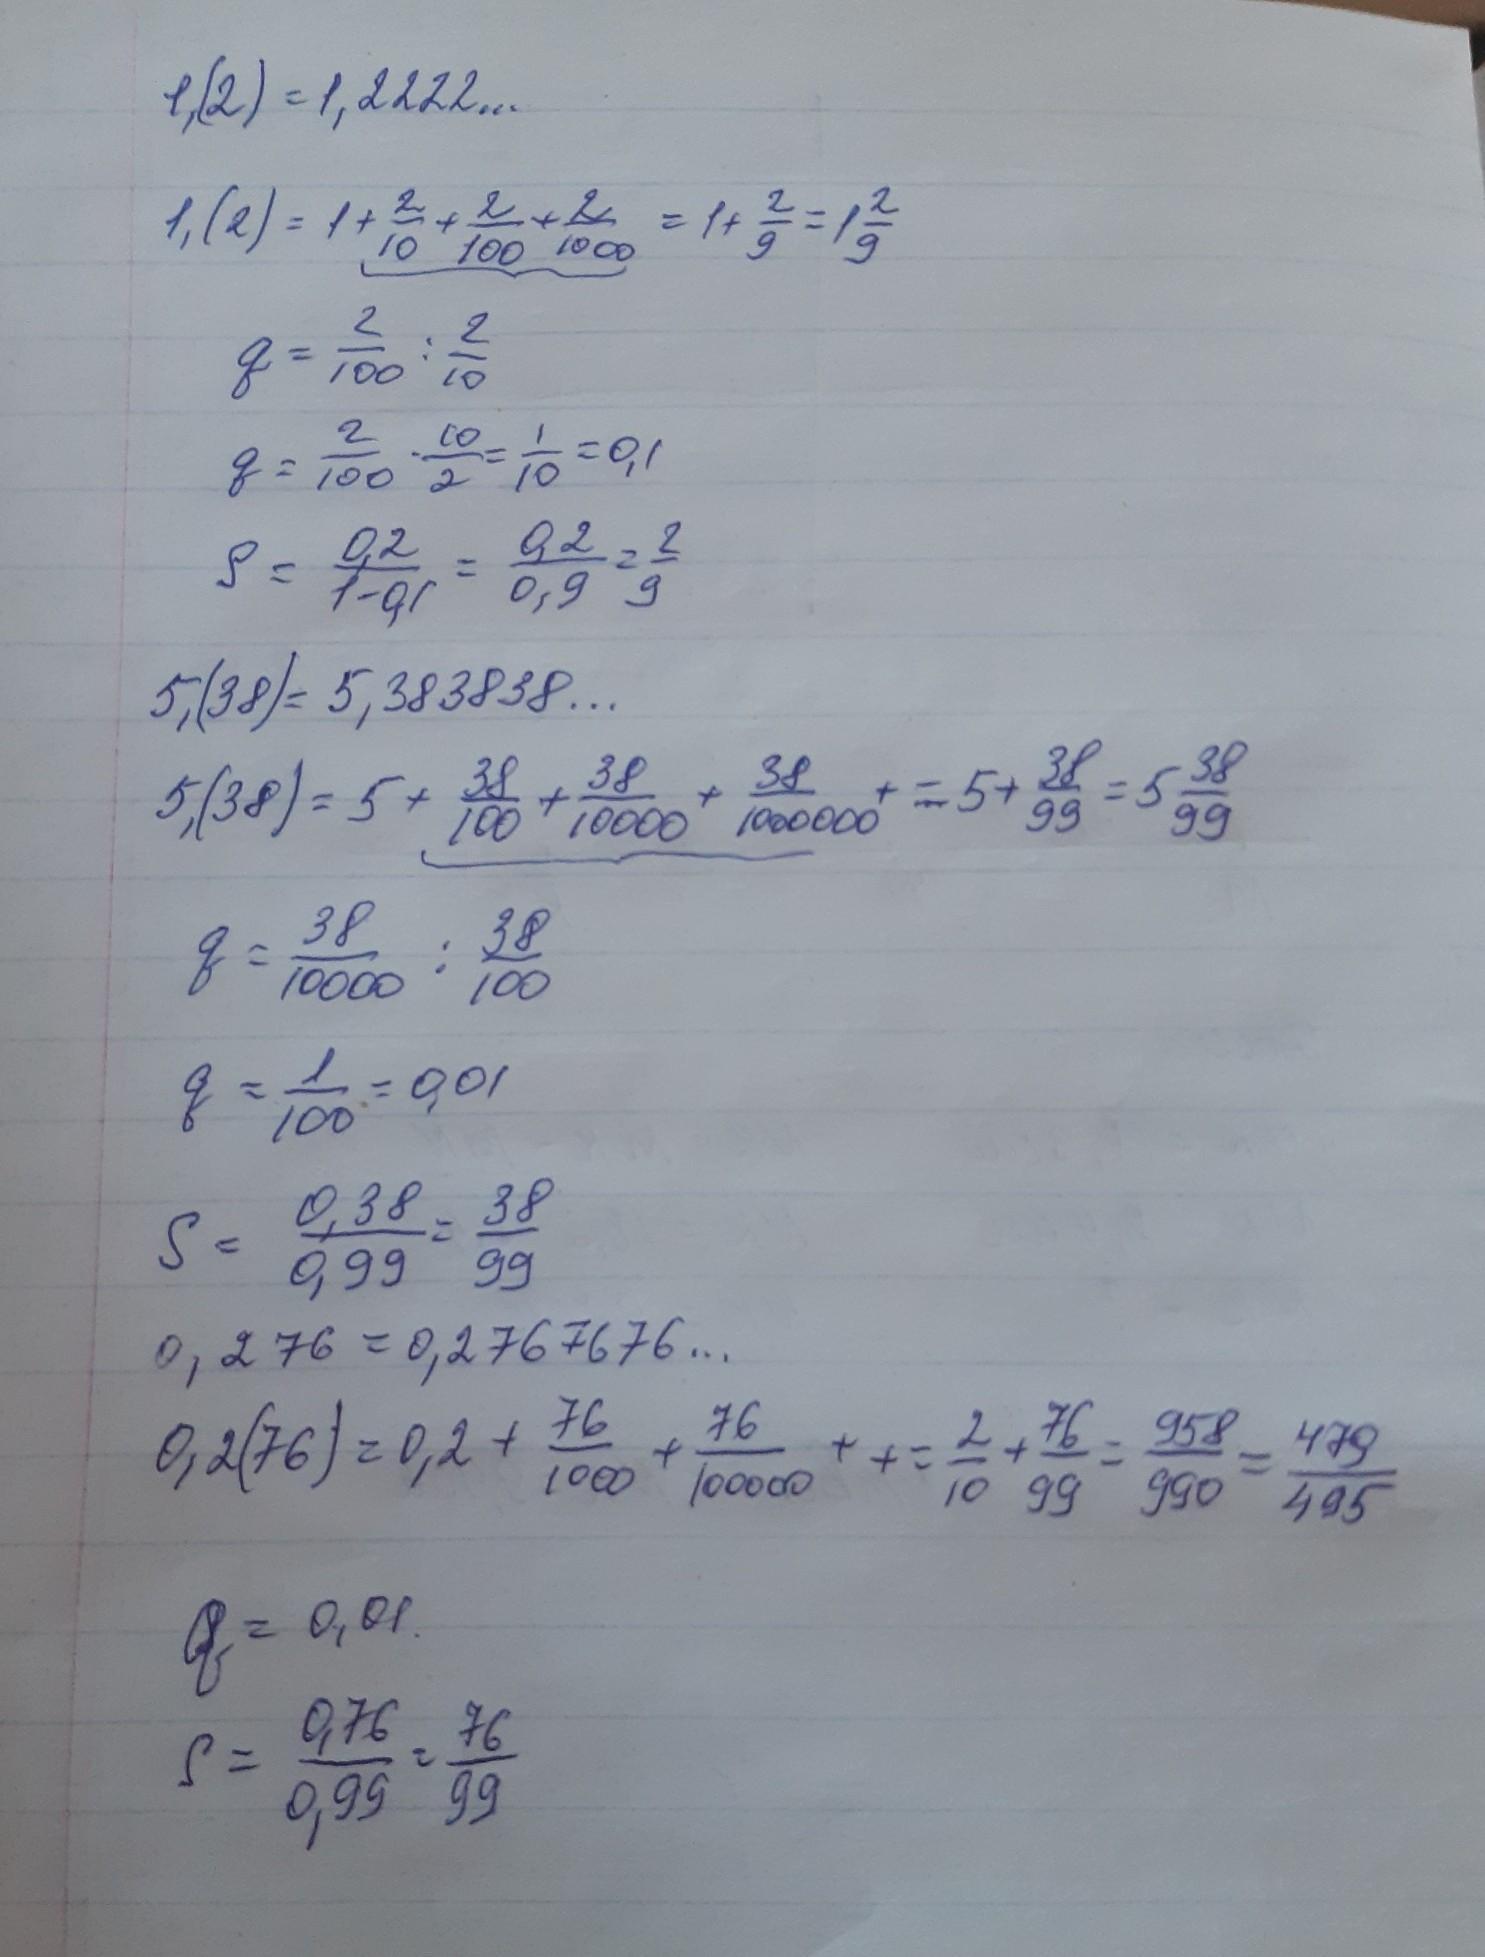 1,(2) = 1,2222...
1,(2) = 1 + 2/10 + 2/100 + 2/1000 = 1 + 2/9 = 1 2/9
q = 2/100 : 2/10
q = 2/100 · 10/2 = 1/10 = 0,1
S = 0,2/(1-0,1) = 0,2/0,9 = 2/9
5,(38) = 5,383838...
5,(38) = 5 + 38/100 + 38/10000 + 38/1000000 + = 5 + 38/99 = 5 38/99
q = 38/10000 : 38/100
q = 1/100 = 0,01
S = 0,38/0,99 = 38/99
0,276 = 0,2767676...
0,2(76) = 0,2 + 76/1000 + 76/100000 + + = 2/10 + 76/99 = 958/990 = 479/495
q = 0,01.
S = 0,76/0,99 = 76/99